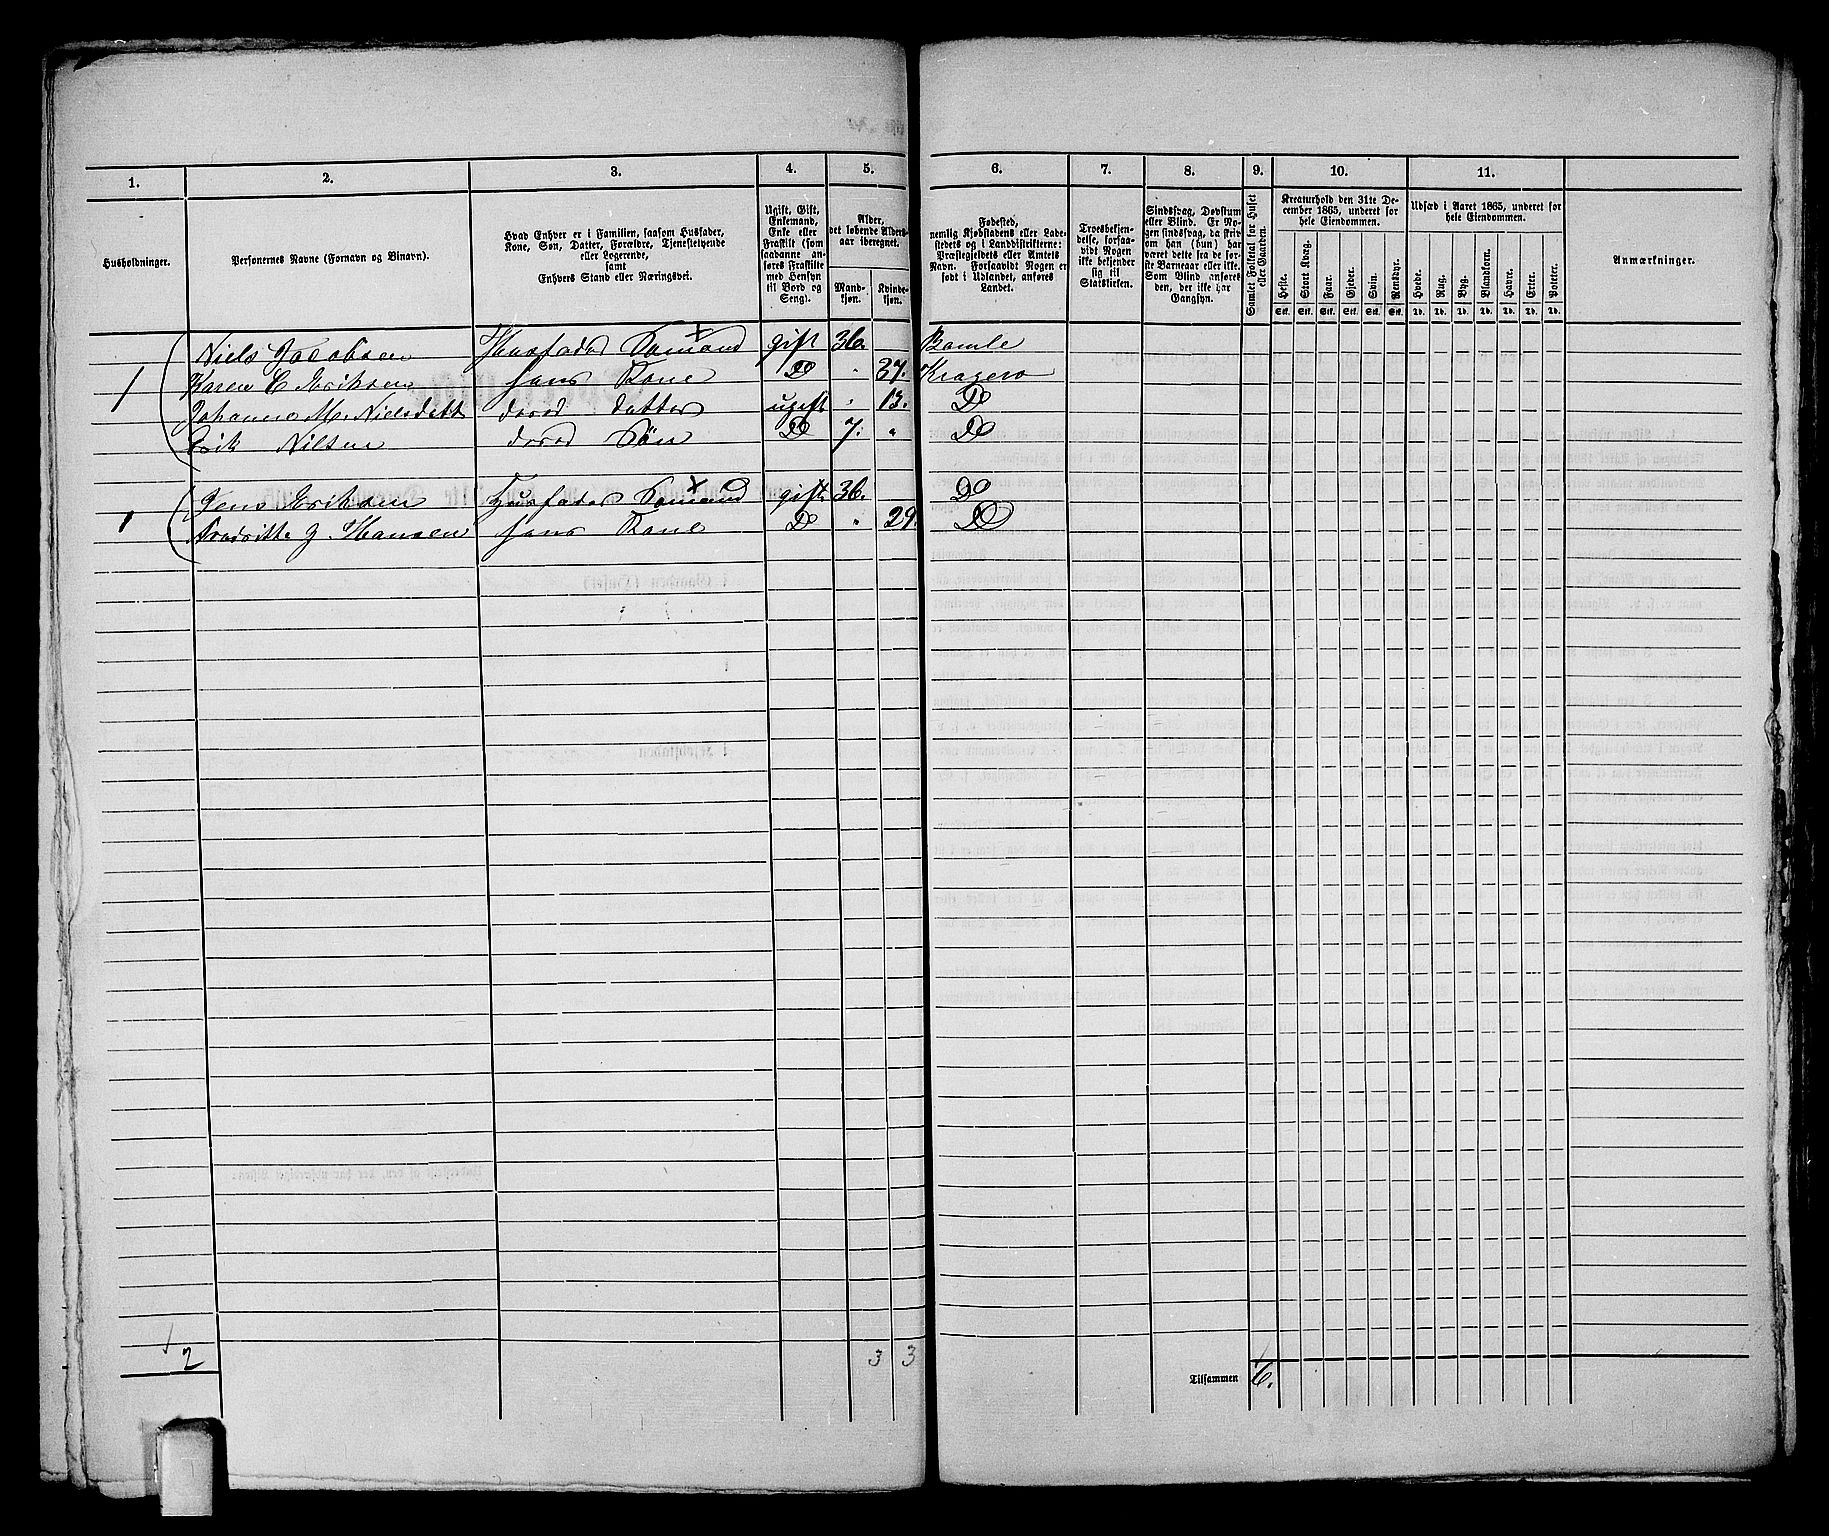 1. 2. 3. 4. 5. 6. 7. 8. 9. 10. 11.
Husholdninger.
Personernes Navne (Fornavn og Binavn).
Hvad Enhver er i Familien, saasom Husfader,
Kone, Søn, Datter, Forældre, Tjenestetyende
eller Logerende,
samt
Enhvers Stand eller Næringsvei.
Ugift, Gift,
Enkemand,
Enke eller
Fraskilt (som
saadanne an-
føres Fraskilte
med Hensyn
til Bord og
Seng).
Alder,
det løbende Alders-
aar iberegnet.
Mand-
kjøn.
Kvinde-
kjøn.
Fødested,
nemlig Kjøbstadens eller Lade-
stedets og i Landdistrikterne:
Præstegjeldets eller Amtets
Navn. Forsaavidt Nogen er
født i Udlandet, anføres
Landet.
Troesbekjen-
delse, forsaa-
vidt Nogen
ikke bekjender
sig til
Statskirken.
Sindssvag, Døvstum
eller Blind. Er No-
gen sindssvag, da skriv
om han (hun) har
været dette fra de før-
ste Barneaar eller ikke.
Som Blind anføres
den, der ikke har
Gangsyn.
Samlet Folketal for Huset
eller Gaarden.
Kreaturhold den 31te De-
cember 1865, underet for
hele Eiendommen.
Heste. Stort Kvæg. Faar. Gjeder. Svin. Rensdyr.
Stk. Stk. Stk. Stk. Stk. Stk.
Udsæd i Aaret 1865, underet for
hele Eiendommen.
Hvede. Rug. Byg. Blandkorn. Havre. Erter. Poteter.
Td. Td. Td. Td. Td. Td. Td.
Anmærkninger.
Niels Jacobsen Husfader Sømand gift 36. Bamle
1 Karen C Eriksen hans Kone Do " 37. Kragerø
Johanne M. Nielsdatt deres datter ugift " 13. Do
Erik Nilsen deres Søn Do 7. " Do
Jens Eriksen Husfader Sømand gift 36. Do
1 Fredrikke J Hansen hans Kone Do " 29. Do
2 3 3
Tilsammen 6.